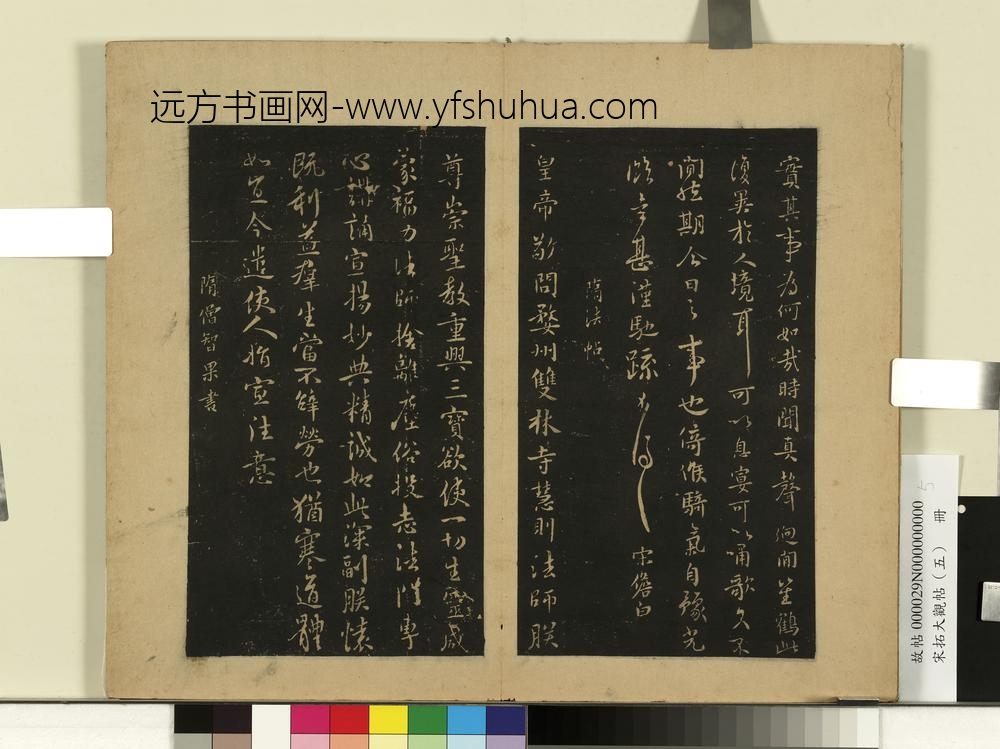 远方书画网-www.yfshuhua.com
實其事為何如哉時聞真聲
復異於人境耳可以息宴可以誦歌久不
期今日之事也倚候騎氣自豫
今甚潰馳疏 宋儋白
隋法帖
皇帝敬問婺州雙林寺慧則法師朕
尊崇聖教重興三寶欲使一切生靈咸
蒙福力法師捨離塵俗投志法門專
心講誦宣揚妙典精誠如此深副朕懷
既利益群生當不辭勞也猶寒道體
如宜今遣使人指宣往意
隋僧智果書
故帖000029N000000000
宋拓大觀帖（五） 冊
5